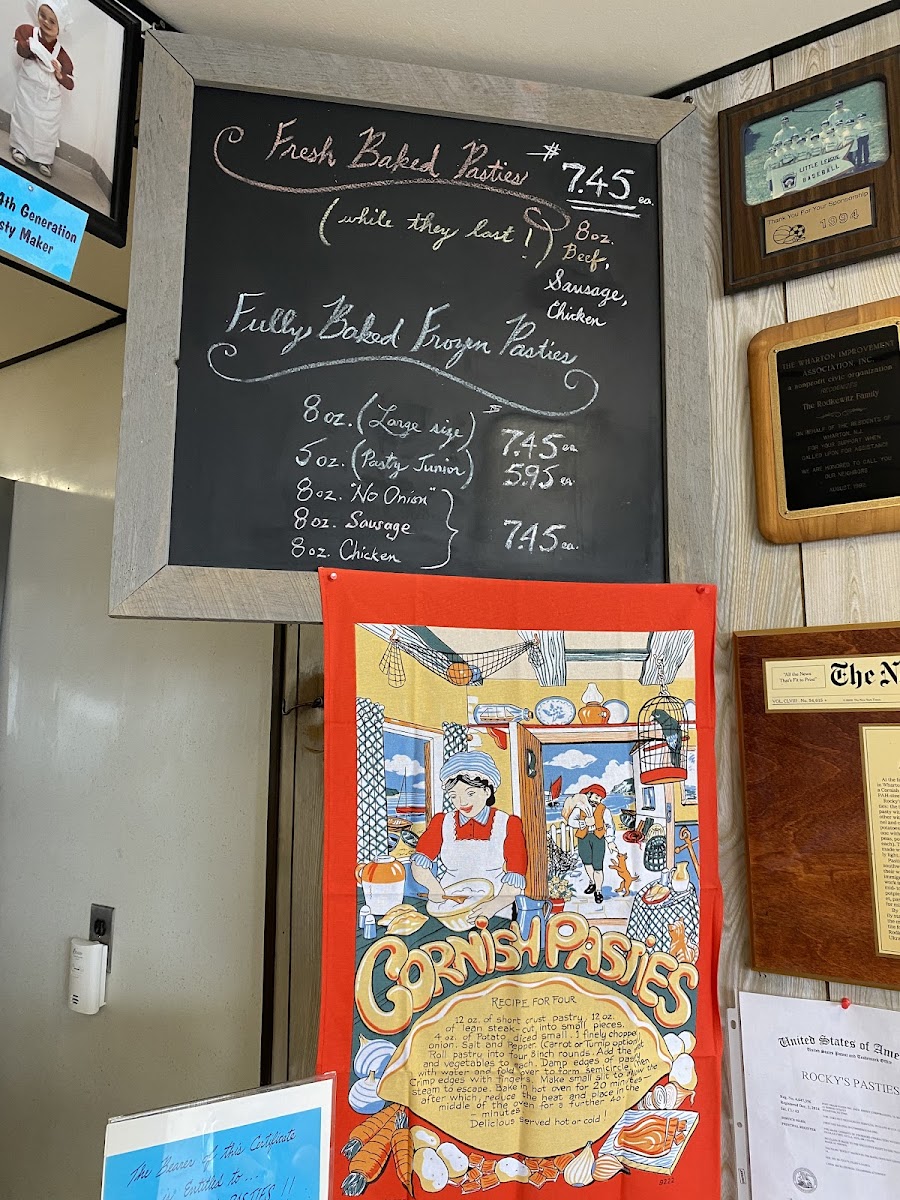 4th Generation
sty Maker
Fresh Baked Pasties $7.45 ea.
(while they last!) 8 oz.
Beef,
Sausage,
Chicken
Fully Baked Frozen Pasties
8 oz. (Large size) $7.45 ea.
5 oz. (Pasty Junior) 5.95 ea.
8 oz. "No Onion"
8 oz. Sausage 7.45 ea.
8 oz. Chicken
LITTLE LEAGUE
BASEBALL
Thank You For Your Sponsorship
1994
THE WHARTON IMPROVEMENT
ASSOCIATION INC.
a nonprofit civic organization
The Rodkewitz Family
ON BEHALF OF THE RESIDENTS OF
WHARTON, N.J.
FOR YOUR SUPPORT WHEN
CALLED UPON FOR ASSISTANCE
WE ARE HONORED TO CALL YOU
OUR NEIGHBORS
"All the News
That's Fit to Print"
The N
CORNISH PASTIES
RECIPE FOR FOUR
12 oz. of short crust pastry, 12 oz.
of lean steak-cut into small pieces.
4 oz. of Potato diced small. 1 finely chopped
onion. Salt and Pepper. (Carrot or Turnip optional)
Roll pastry into four 8 inch rounds. Add the
and vegetables to each. Damp edges of pastry
with water and fold over to form semicircle.
Crimp edges with fingers. Make small slit to allow the
steam to escape. Bake in hot oven for 20 minutes
after which, reduce the heat and place in the
middle of the oven for a further 40
minutes
Delicious served hot or cold!
The Bearer of this Certificate
Is Entitled to ...
PASTIES!!
United States of Ame
United States Patent and Trademark Office
ROCKY'S PASTIES